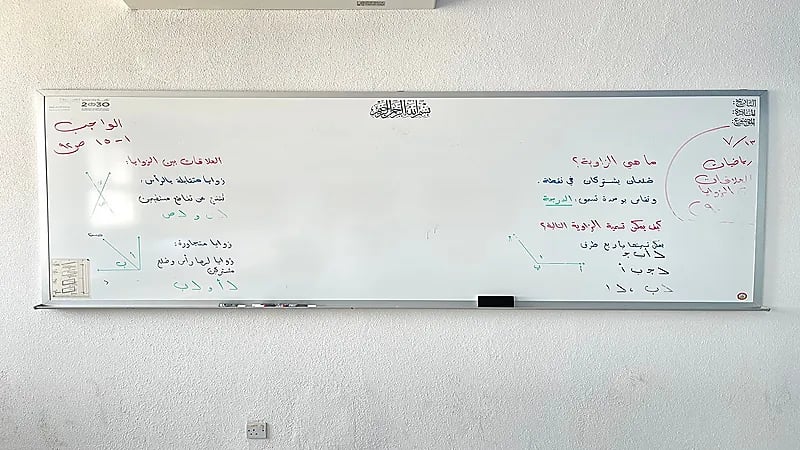 بسم الله الرحمن الرحيم
التاريخ:
المادة:
الموضوع:
٧/١٣
رياضيات
العلاقات
بين الزوايا
ما هي الزاوية؟
ضلعان يشتركان في نقطة.
وتقاس بوحدة تسمى: الدرجة
كيف يمكن تسمية الزاوية التالية؟
يمكن تسميتها بأربع طرق
أ ب ج
ج ب أ
ب ، ١
2030
الواجب
١ - ١٥ ص ٩٢
العلاقات بين الزوايا:
زوايا متقابلة بالرأس:
تنتج عن تقاطع مستقيمين
زوايا متجاورة:
زوايا لها رأس وضلع
مشترك
أ و ب